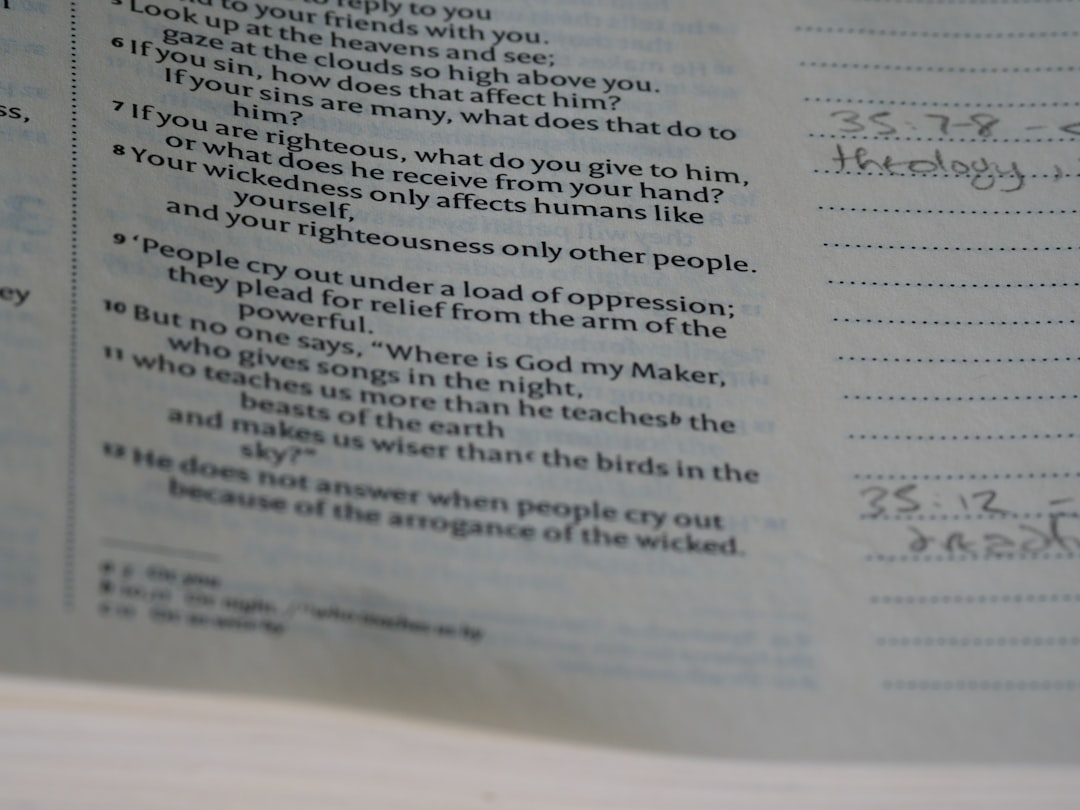 reply to you
to your friends with you.
5 Look up at the heavens and see;
gaze at the clouds so high above you.
6 If you sin, how does that affect him?
If your sins are many, what does that do to
him?
7 If you are righteous, what do you give to him,
or what does he receive from your hand?
8 Your wickedness only affects humans like
yourself,
and your righteousness only other people.
9 ‘People cry out under a load of oppression;
they plead for relief from the arm of the
powerful.
10 But no one says, “Where is God my Maker,
who gives songs in the night,
11 who teaches us more than he teachesb the
beasts of the earth
and makes us wiser thanc the birds in the
sky?”
12 He does not answer when people cry out
because of the arrogance of the wicked.
ss,
ey
35:7-8 -
theology,
35:12 -